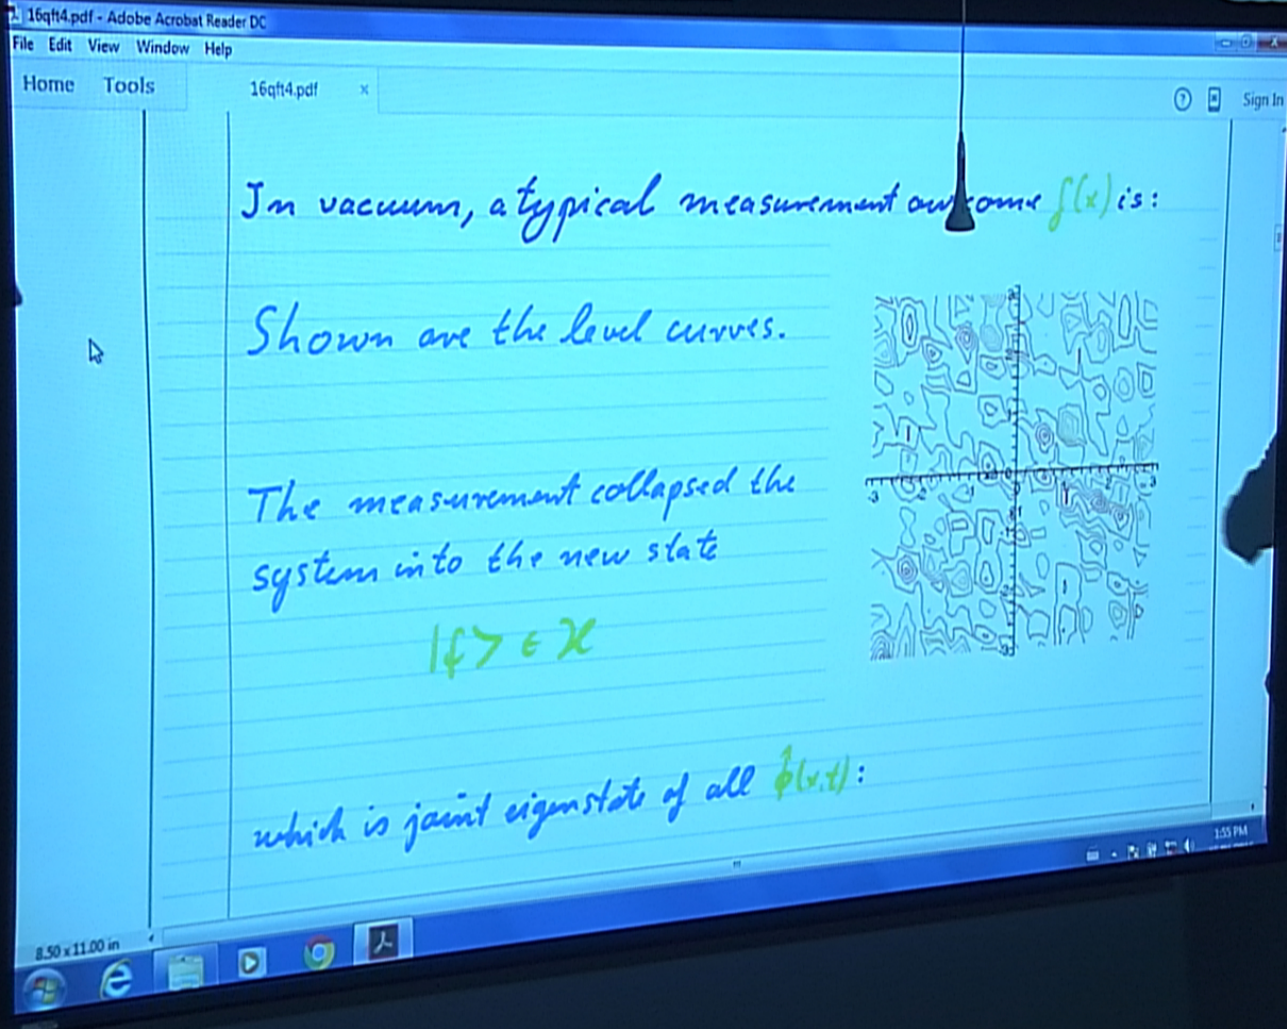 16qft4.pdf - Adobe Acrobat Reader DC
File Edit View Window Help
Home Tools 16qft4.pdf × Sign In
In vacuum, a typical measurement outcome f(x) is:
Shown are the level curves.
The measurement collapsed the
system into the new state
|f> ∈ ℋ
which is joint eigenstate of all φ̂(x,t):
-3 -2 -1 0 1 2 3
8.50 x 11.00 in
1:55 PM